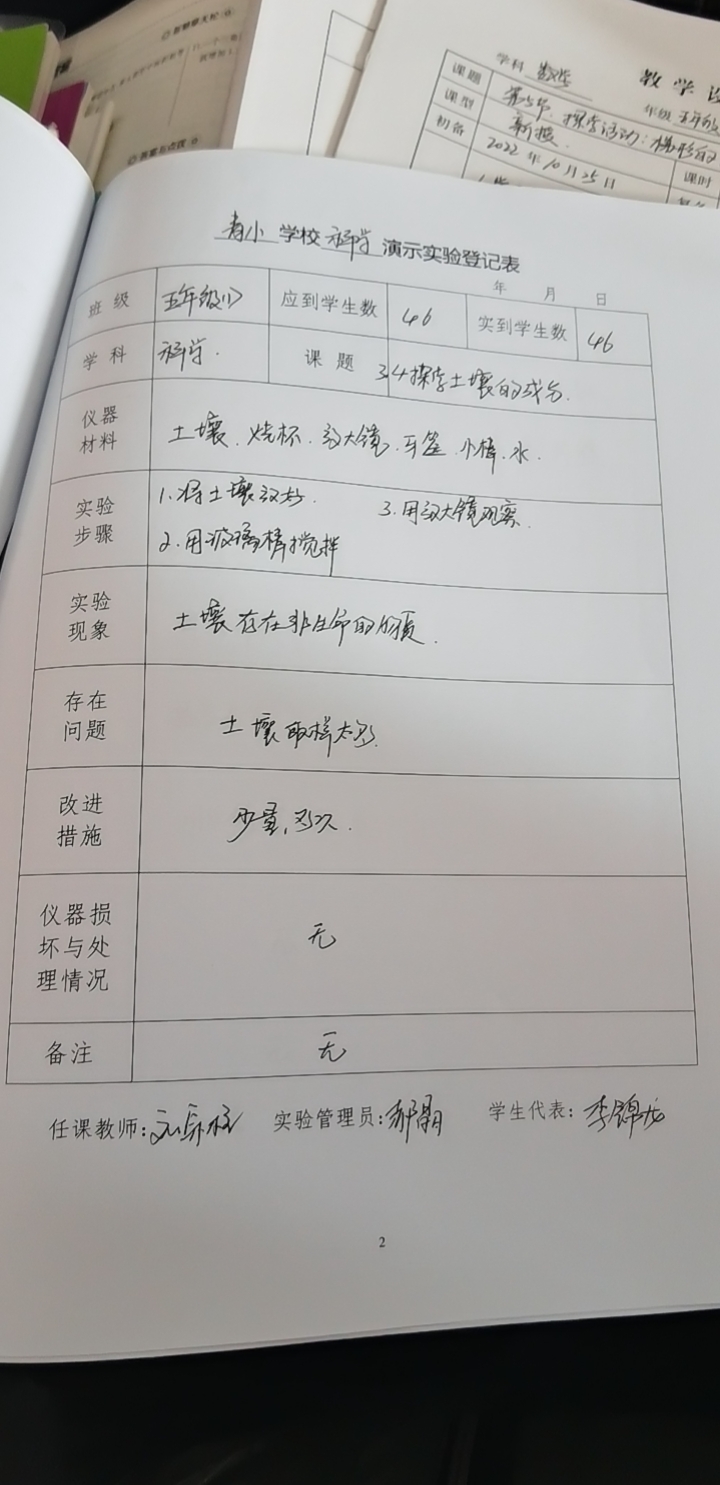 学科 数学 教学设
课题 第5节 探索活动:梯形的
年级 五年级
课型 新授
课时
初备 2022年10月25日
青小 学校 科学 演示实验登记表
年 月 日
班级 五年级(1) 应到学生数 46 实到学生数 46
学科 科学. 课题 3.4探索土壤的成分.
仪器材料 土壤.烧杯.放大镜.牙签.小棒.水.
实验步骤 1.将土壤放好. 3.用放大镜观察.
2.用玻璃棒搅拌
实验现象 土壤存在非生命的物质.
存在问题 土壤取样太多.
改进措施 少量,多次.
仪器损坏与处理情况 无
备注 无
任课教师: 实验管理员:郝 学生代表:李锦龙
2